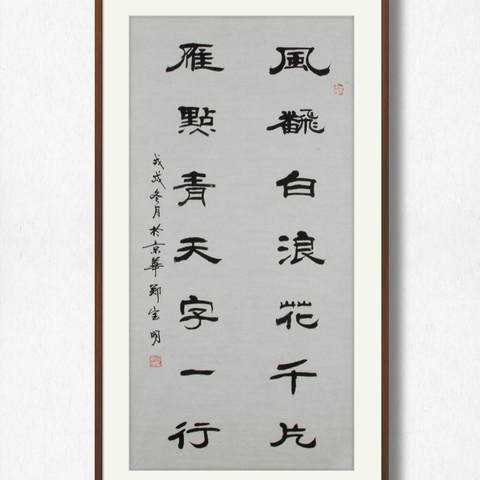 風飜白浪花千片
雁點青天字一行
戊戌冬月於京華鄭宝明